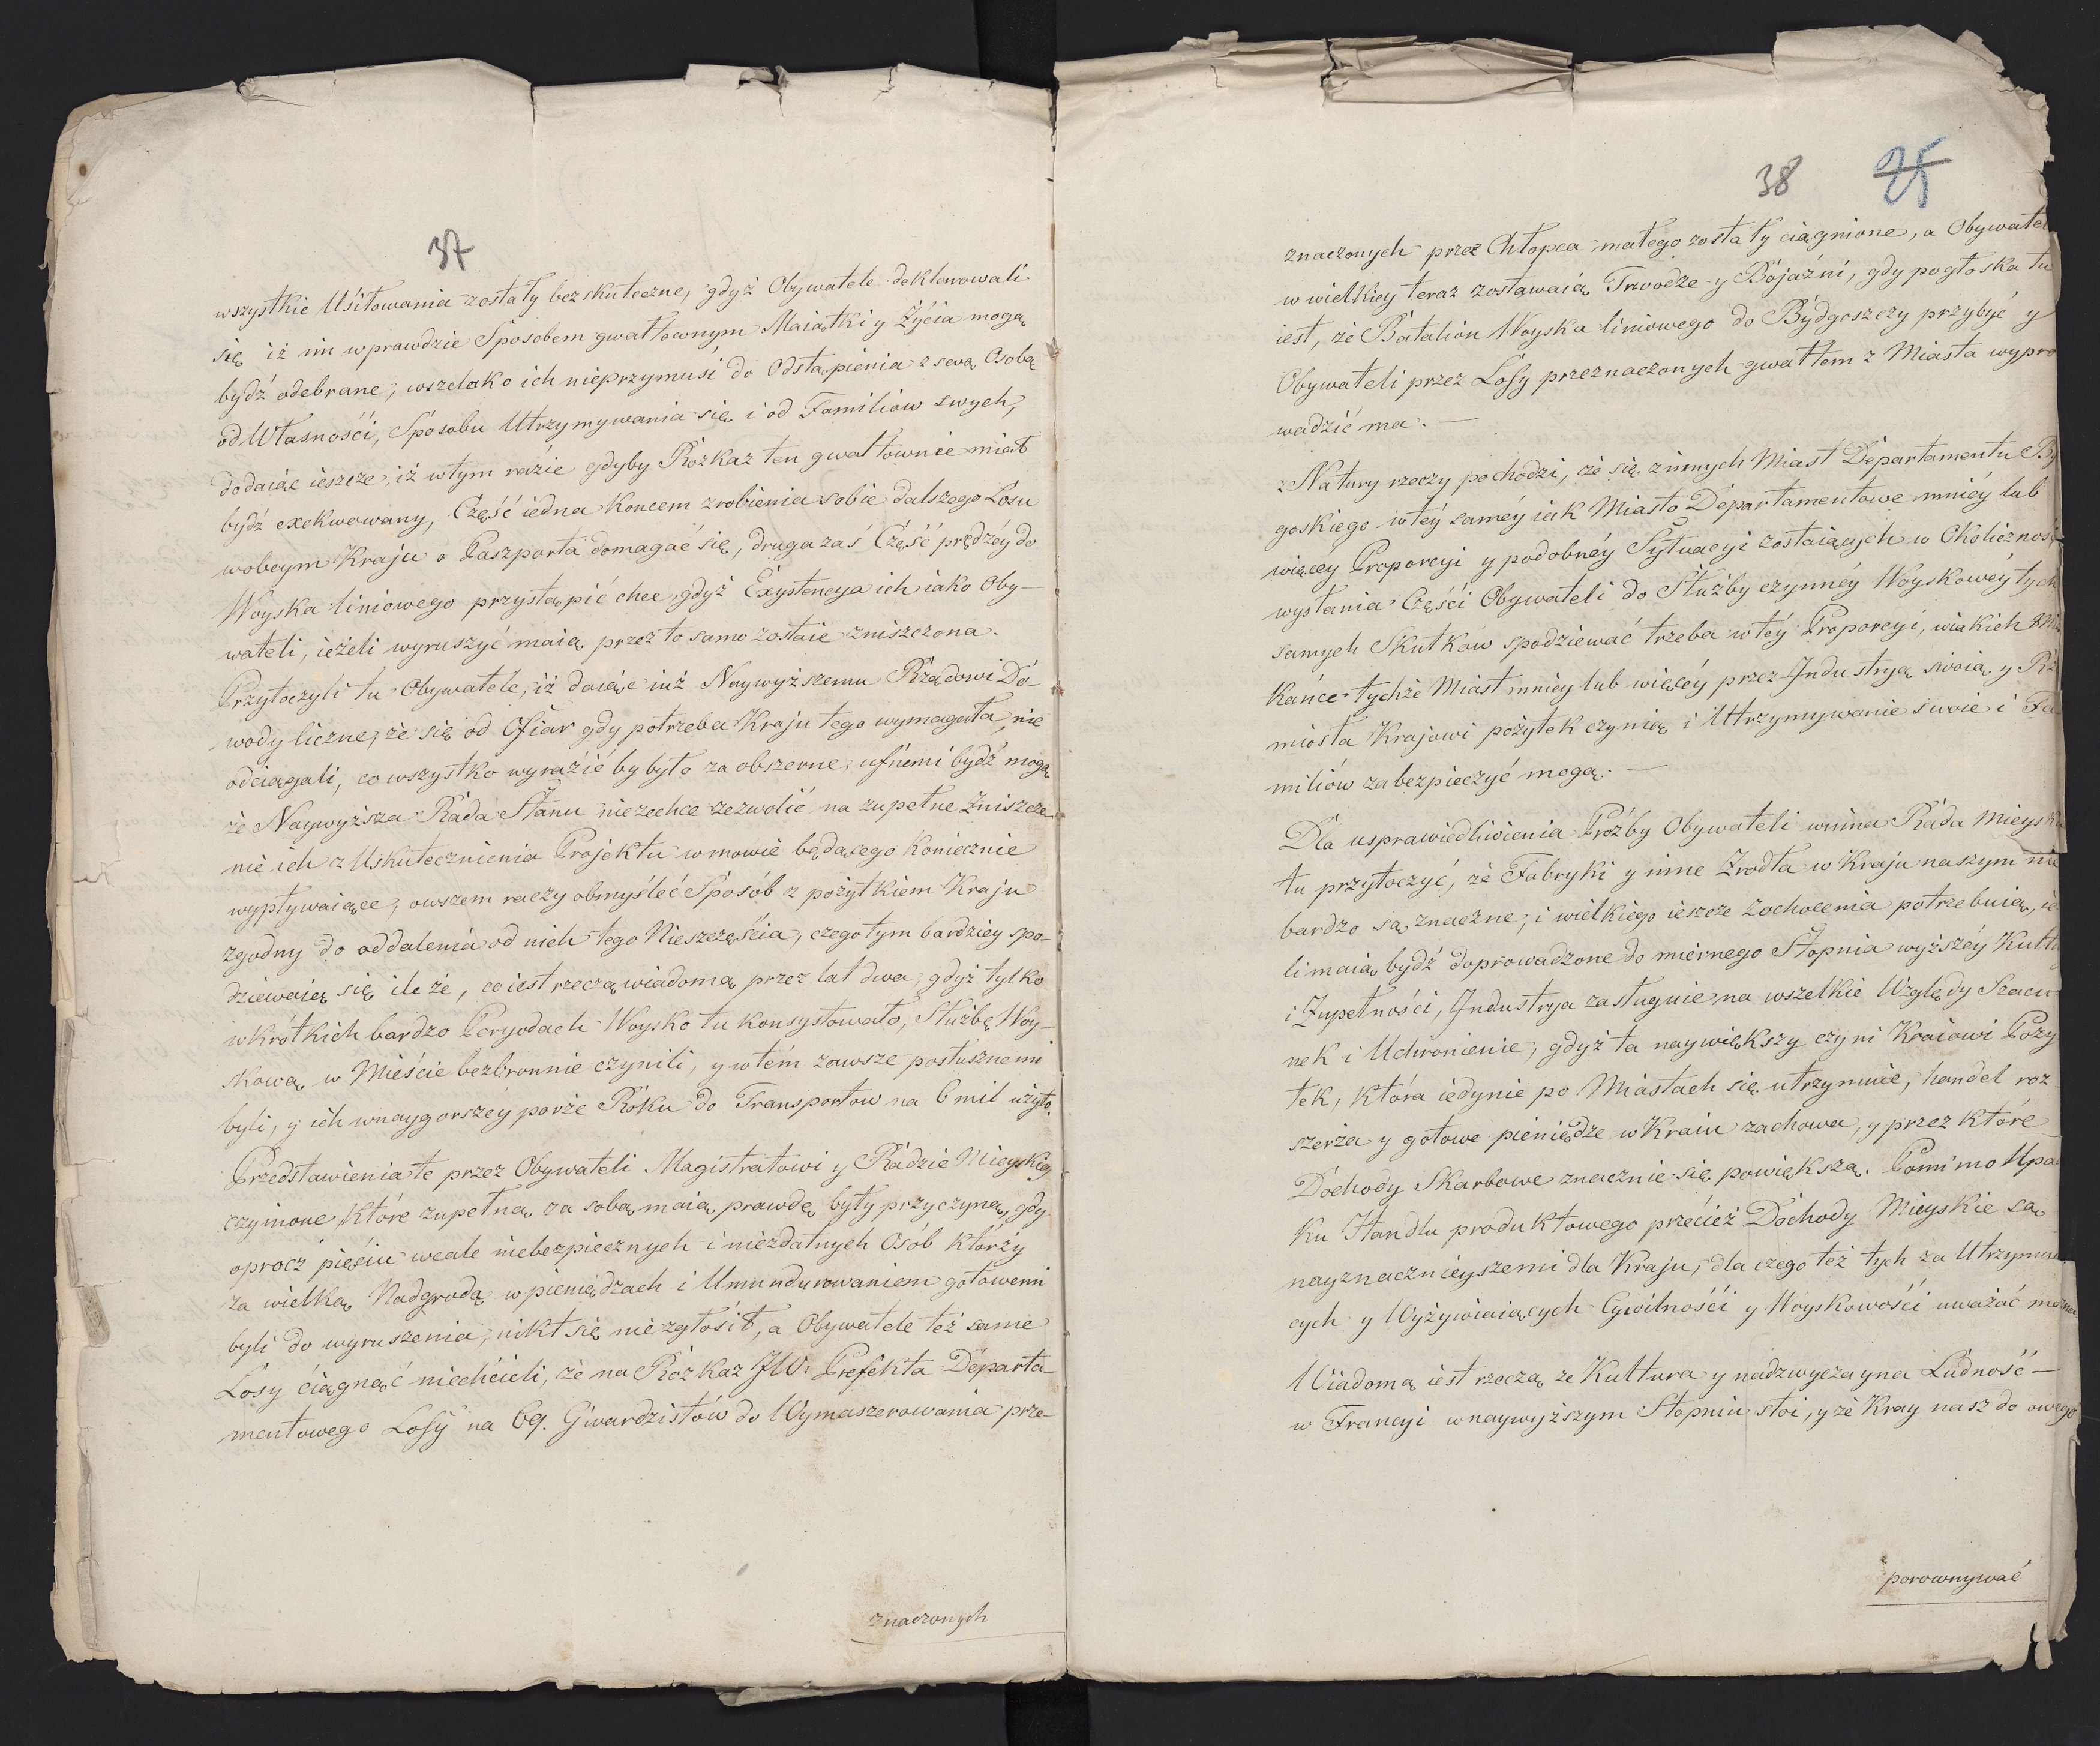 37
wszystkie Usiłowania zostały bezskuteczne, gdyż Obywatele deklarowali
się iż im wprawdzie Sposobem gwałtownym Maiątki y Życia mogą
bydź odebrane, wszelako ich nieprzymusi do Odstąpienia z swą Osobą
od Własności, Sposobu Utrzymywania się i od Familiów swych,
dodaiąc ieszcze, iż wtym razie gdyby Rozkaz ten gwałtownie miał
bydź exekwowany, Część iedna Koncem zrobienia sobie dalszego Losu
wobcym Kraju o Paszporta domagać się, druga zaś Część prędzéy do
Woyska liniowego przystąpić chce, gdyż Exystencya ich iako Oby-
wateli, ieżeli wyruszyć maią, przez to samo zostaie zniszczona.
Przytoczyli tu Obywatele, iż daiąc iuż Naywyższemu Rządowi Do-
wody liczne, że się od Ofiar gdy potrzeba Kraju tego wymagała, nie
odciągali, co wszystko wyrazić by było za obszerne, ufnemi bydź mogą
że Naywyższa Rada Stanu niezechce zezwolić na zupełne Zniszcze-
nie ich z Uskutecznienia Projektu wmowie będącego Koniecznie
wypływaiące, owszem raczy obmyśleć Sposób z pożytkiem Kraju
zgodny do oddalenia od nich tego Nieszczęścia, czego tym bardziey spo-
dziewaią się ile że, co iest rzeczą wiadomą, przez lat dwa, gdyż tylko
wkrótkich bardzo Peryodach Woysko tu konsystowało, Służbę Woy-
skową w Mieście bezbronnie czynili, y wtém zawsze posłusznemi
byli, y ich wnaygorszéy porze Roku do Transportow na 6 mil użyto.
Przedstawienia te przez Obywateli Magistratowi y Radzie Mieyskiey
czynione, które zupełną za sobą maią prawdę, były przyczyną, gdy
oprocz pięciu wcale niebezpiecznych i niezdatnych Osób którzy
za wielką Nadgrodą w pieniędzach i Umundurowaniem gotowemi
byli do wyruszenia, nikt się nie zgłosił, a Obywatele też same
Losy ciągnąć niechcieli, że na Rozkaz JW: Prefekta Departa-
mentowego Losy na 69. Gwardzistów do Wymaszerowania prze-
znaczonych
38 25
znaczonych przez Chłopca małego zostały ciągnione, a Obywatel
w wielkiey teraz zostawaią Trwodze y Bojaźni, gdy pogłoska tu
iest, że Batalion Woyska liniowego do Bydgoszczy przybyć y
Obywateli przez Losy przeznaczonych gwałtem z Miasta wypro
wadzić ma. —
z Natury rzeczy pochodzi, że się z innych Miast Departamentu By
goskiego wtéy saméy iak Miasto Departamentowe mniéy lub
więcey Proporcyi y podobnéy Sytuacyi zostaiących w Okolicznośc
wysłania Części Obywateli do Służby czynnéy Woyskowéy tych
samych Skutkow spodziewać trzeba wtéy Proporcyi, wiakich Mi
kańce tychże Miast mniey lub więcéy przez Industryą swoią y Rz
miosła Krajowi pożytek czynią i Utrzymywanie swoie i Fa
miliów zabezpieczyć mogą. —
Dla usprawiedliwienia Proźby Obywateli winna Rada Mieyska
tu przytoczyć, że Fabryki y inne Zrodła w Kraju naszym nie
bardzo są znaczne, i wielkiego ieszcze Zachocenia potrzebuią, ie
li maią bydź doprowadzone do miernego Stopnia wyższéy Kultu
i Zupełności, Industrya zasługuie na wszelkie Względy Szacu
nek i Uchronienie, gdyż ta naywiększy czyni Kraiowi Poży
tek, która iedynie po Miastach się utrzymuie, handel roz
szerza y gotowe pieniędze w Kraiu zachowa, y przez które
Dochody Skarbowe znacznie się powiększą. Pomimo Upa
ku Handlu produktowego przecież Dochody Mieyskie są
nayznacznieyszemi dla Kraju, dla czego też tych za Utrzymui
cych y Wyżywiaiących Cywilności y Woyskowości uważać można
Wiadomą iest rzeczą że Kultura y nadzwyczayna Ludność —
w Francyi wnaywyższym Stopniu stoi, y że Kray nasz do owego
porownywać